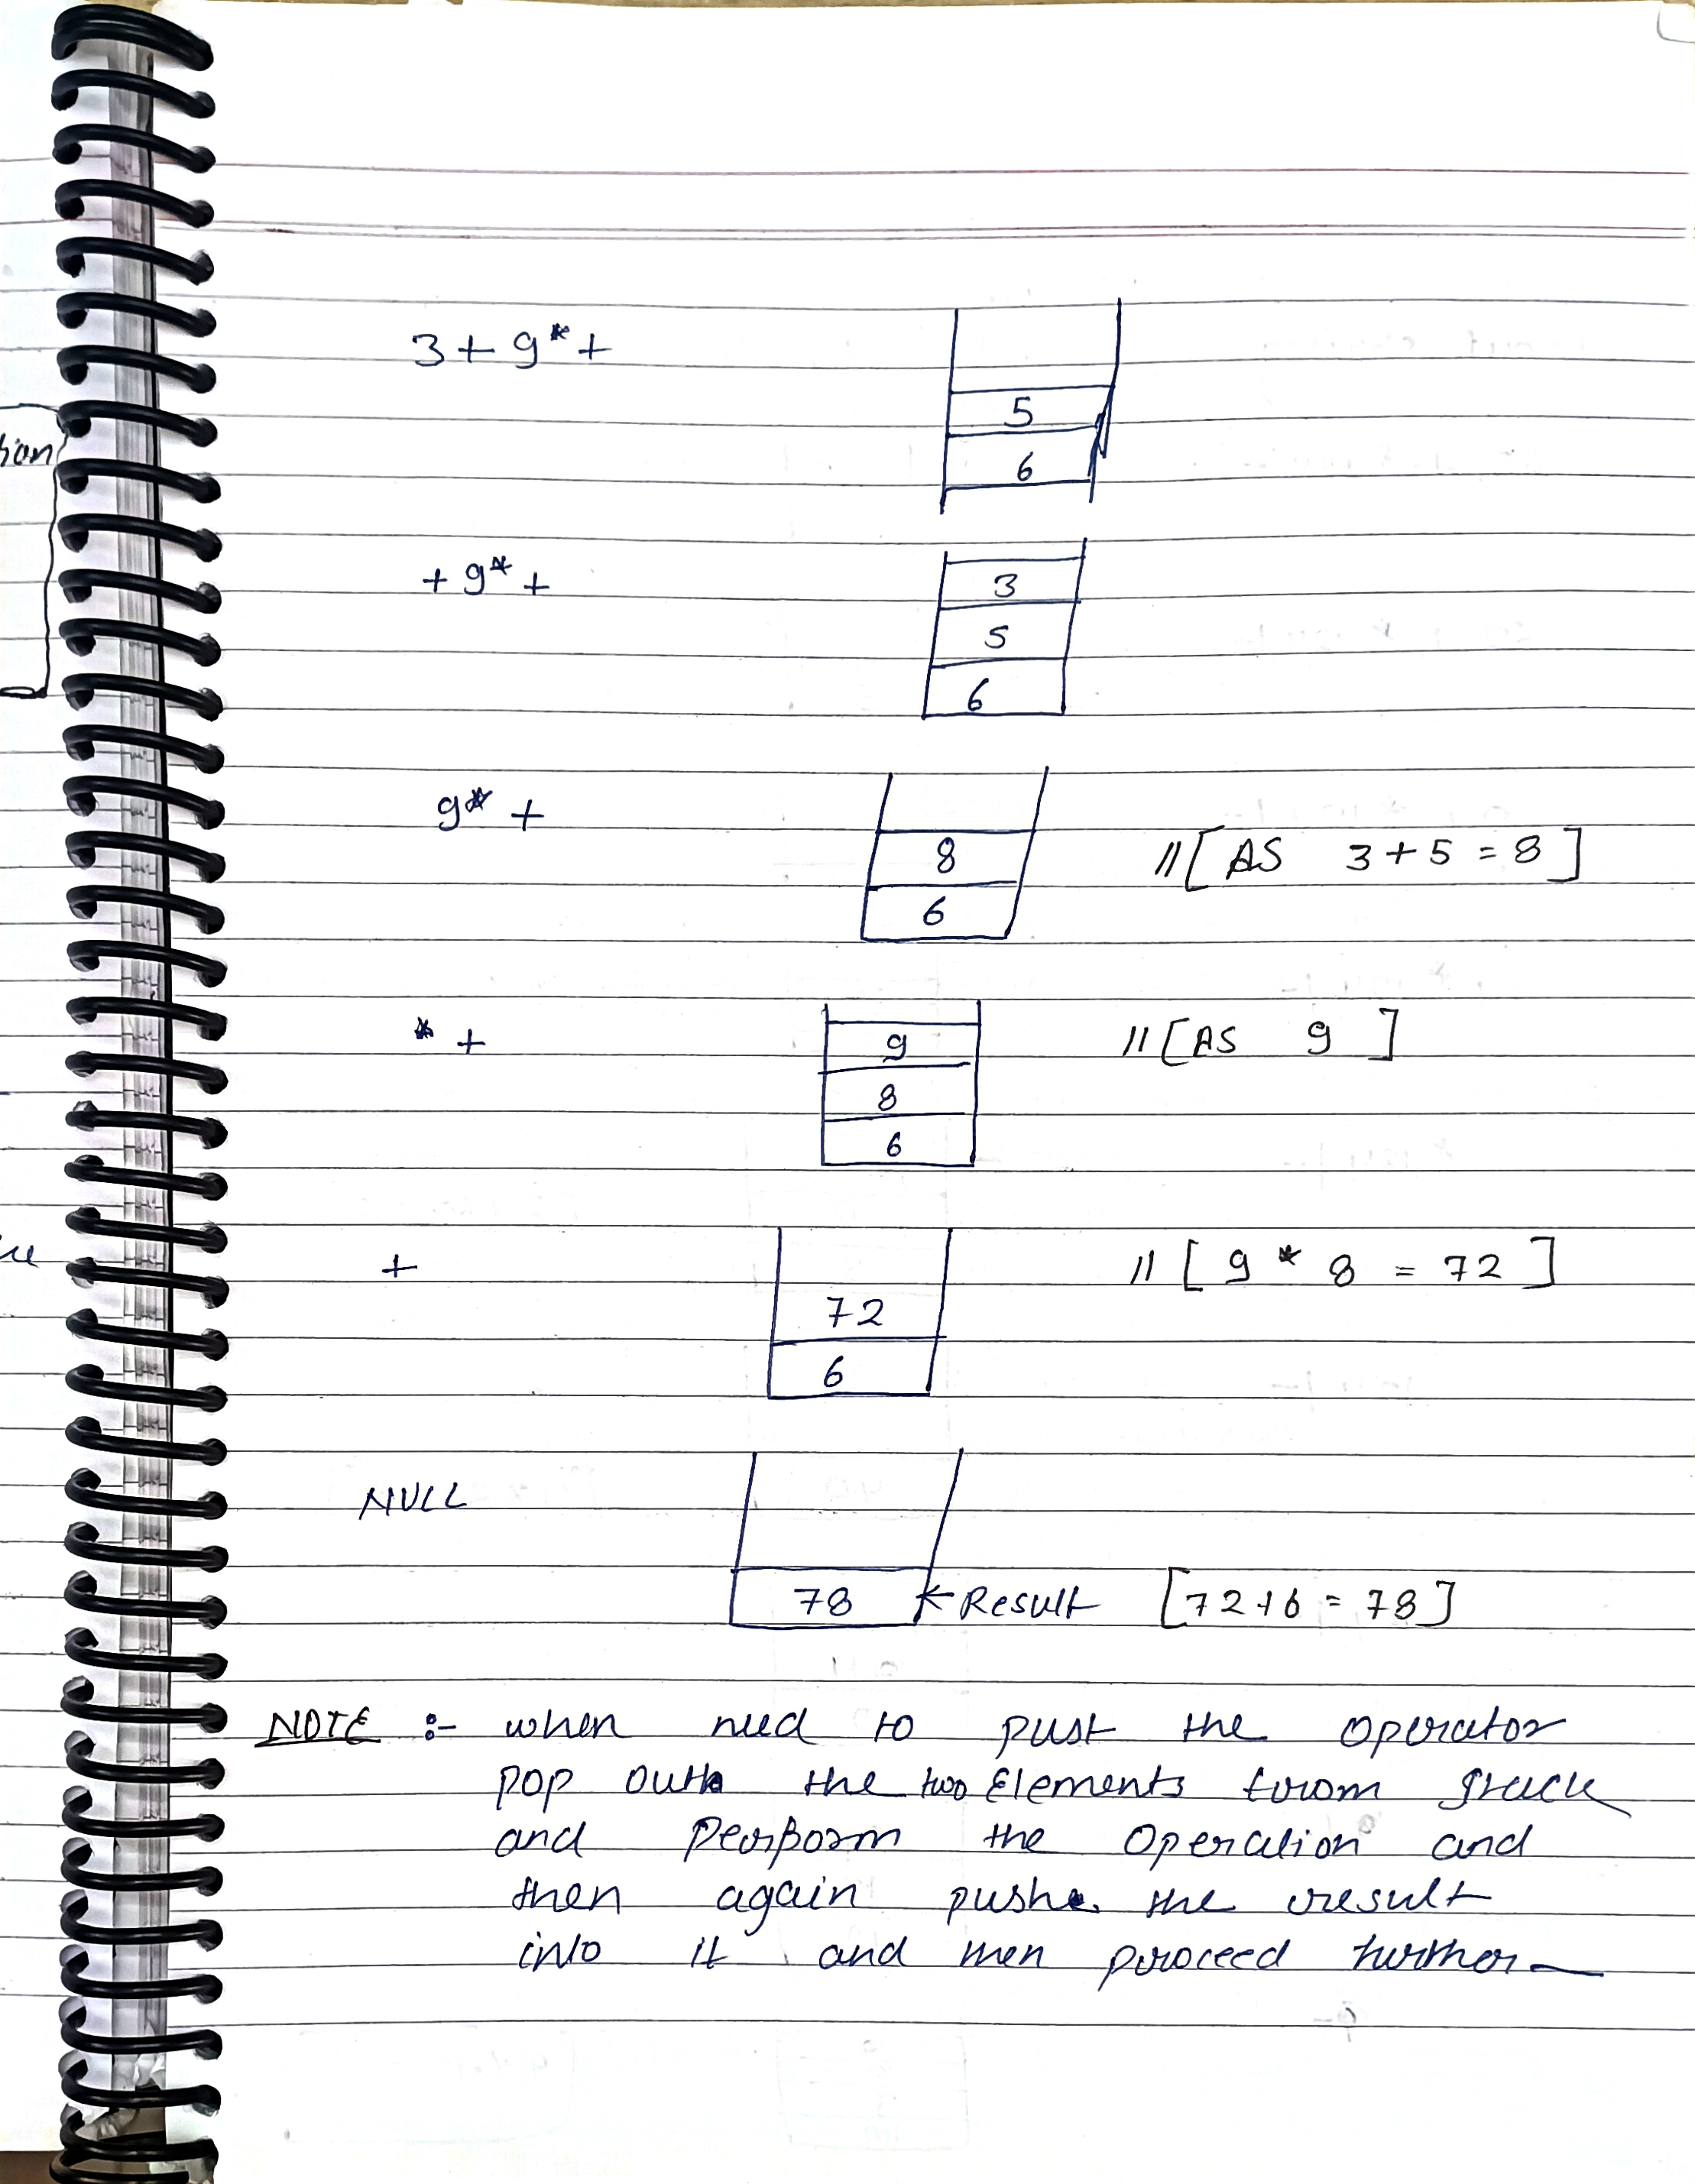 3 + 9 * +
5
6
+ 9 * +
3
5
6
9 * +
8
6
// [ AS 3 + 5 = 8 ]
* +
9
8
6
// [ AS 9 ]
+
72
6
// [ 9 * 8 = 72 ]
NULL
78
Result [ 72 + 6 = 78 ]
NOTE :- when need to pust the operator
pop out the two Elements from stack
and Perform the Operation and
then again push the result
into it and then proceed further